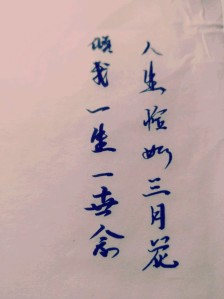 人生恰如三月花
倾我一生一世念